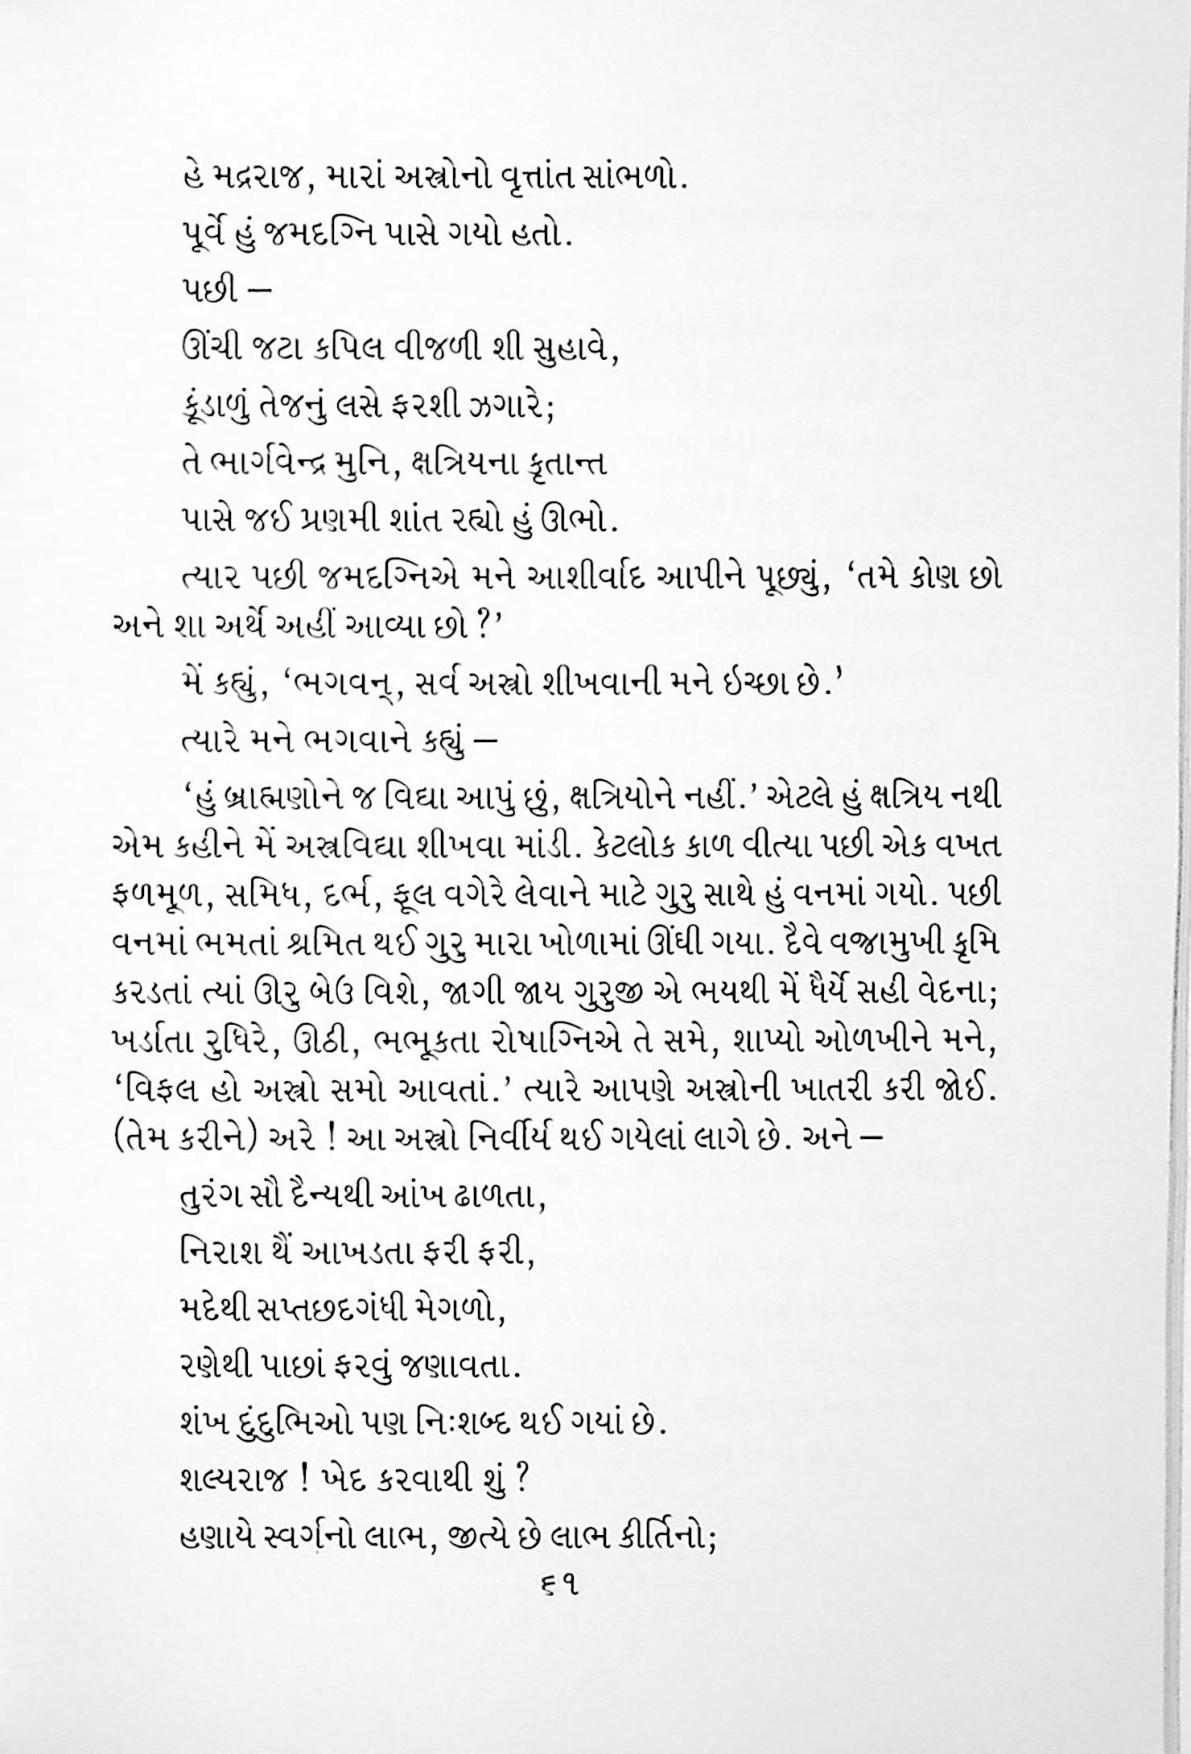 હે મદ્રરાજ, મારાં અસ્ત્રોનો વૃત્તાંત સાંભળો.
પૂર્વે હું જમદગ્નિ પાસે ગયો હતો.
પછી –
ઊંચી જટા કપિલ વીજળી શી સુહાવે,
કૂંડાળું તેજનું લસે ફરશી ઝગારે;
તે ભાર્ગવેન્દ્ર મુનિ, ક્ષત્રિયના કૃતાન્ત
પાસે જઈ પ્રણમી શાંત રહ્યો હું ઊભો.
ત્યાર પછી જમદગ્નિએ મને આશીર્વાદ આપીને પૂછ્યું, ‘તમે કોણ છો
અને શા અર્થે અહીં આવ્યા છો ?’
મેં કહ્યું, ‘ભગવન્, સર્વ અસ્ત્રો શીખવાની મને ઇચ્છા છે.’
ત્યારે મને ભગવાને કહ્યું –
‘હું બ્રાહ્મણોને જ વિદ્યા આપું છું, ક્ષત્રિયોને નહીં.’ એટલે હું ક્ષત્રિય નથી
એમ કહીને મેં અસ્ત્રવિદ્યા શીખવા માંડી. કેટલોક કાળ વીત્યા પછી એક વખત
ફળમૂળ, સમિધ, દર્ભ, ફૂલ વગેરે લેવાને માટે ગુરુ સાથે હું વનમાં ગયો. પછી
વનમાં ભમતાં શ્રમિત થઈ ગુરુ મારા ખોળામાં ઊંઘી ગયા. દૈવે વજામુખી કૃમિ
કરડતાં ત્યાં ઊરુ બેઉ વિશે, જાગી જાય ગુરુજી એ ભયથી મેં ધૈર્યે સહી વેદના;
ખર્ડાતા રુધિરે, ઊઠી, ભભૂકતા રોષાગ્નિએ તે સમે, શાપ્યો ઓળખીને મને,
‘વિફલ હો અસ્ત્રો સમો આવતાં.’ ત્યારે આપણે અસ્ત્રોની ખાતરી કરી જોઈ.
(તેમ કરીને) અરે ! આ અસ્ત્રો નિર્વીર્ય થઈ ગયેલાં લાગે છે. અને –
તુરંગ સૌ દૈન્યથી આંખ ઢાળતા,
નિરાશ થૈં આખડતા ફરી ફરી,
મદેથી સપ્તછદગંધી મેગળો,
રણેથી પાછાં ફરવું જણાવતા.
શંખ દુંદુભિઓ પણ નિઃશબ્દ થઈ ગયાં છે.
શલ્યરાજ ! ખેદ કરવાથી શું ?
હણાયે સ્વર્ગનો લાભ, જીત્યે છે લાભ કીર્તિનો;
૬૧